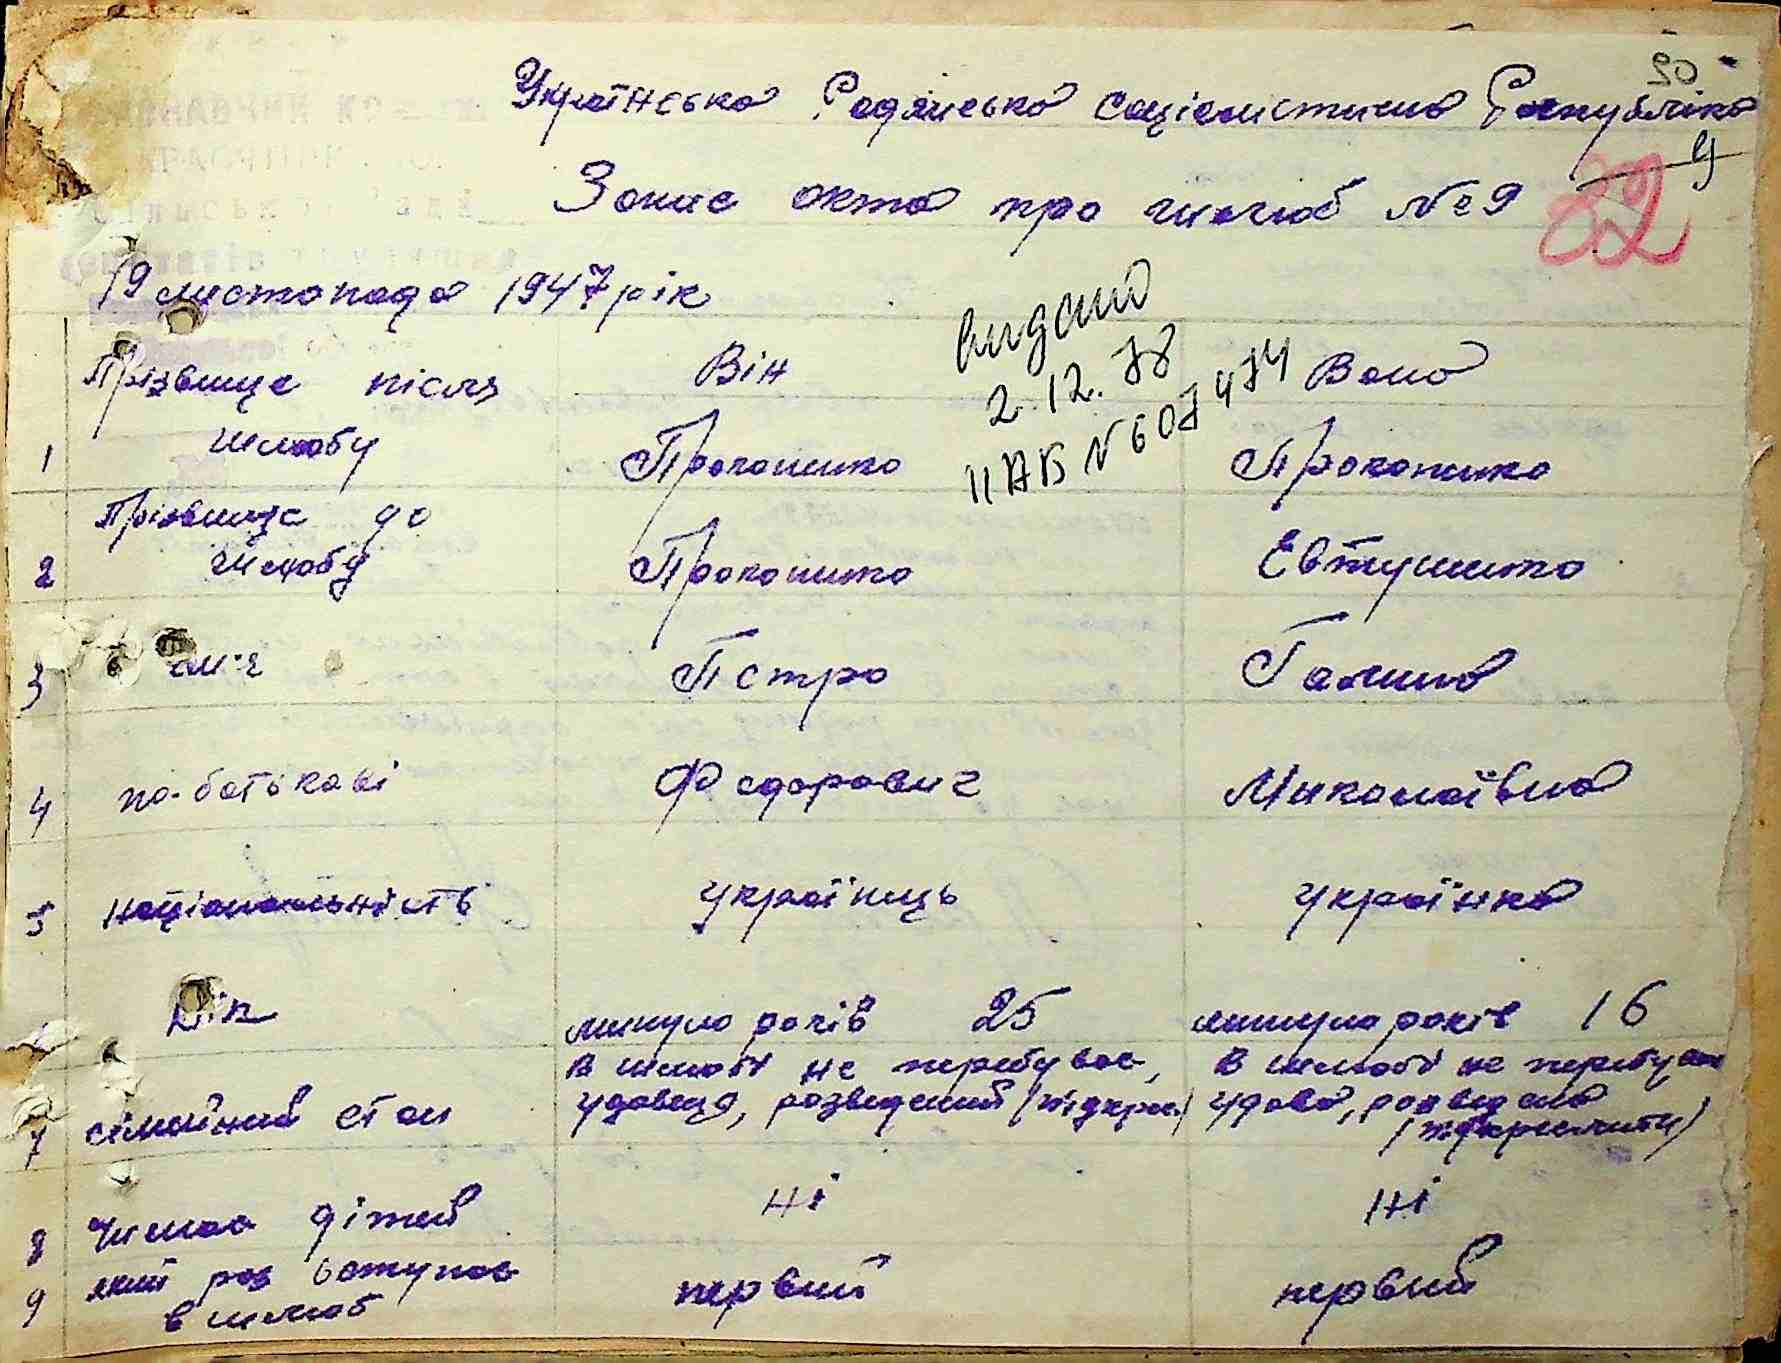 Українська Радянська Соціалистична Республіка
Запис акта про шлюб №9
82
9
19 листопада 1947 рік
видано
2.12.78
II АВ №607474
Він Вона
1 Прізвище після шлюбу Прокопенко Прокопенко
2 Прізвище до шлюбу Прокопенко Євтушенко
3 ім'я Петро Галина
4 по-батькові Федорович Миколаївна
5 національність українець українка
Вік минуло років 25 минуло років 16
7 сімейний стан В шлюбі не перебував, удовець, розведений (підкрес.) В шлюбі не перебувала удова, розведена (підкреслити)
8 Чи має дітей ні ні
9 який раз вступає в шлюб первий первий